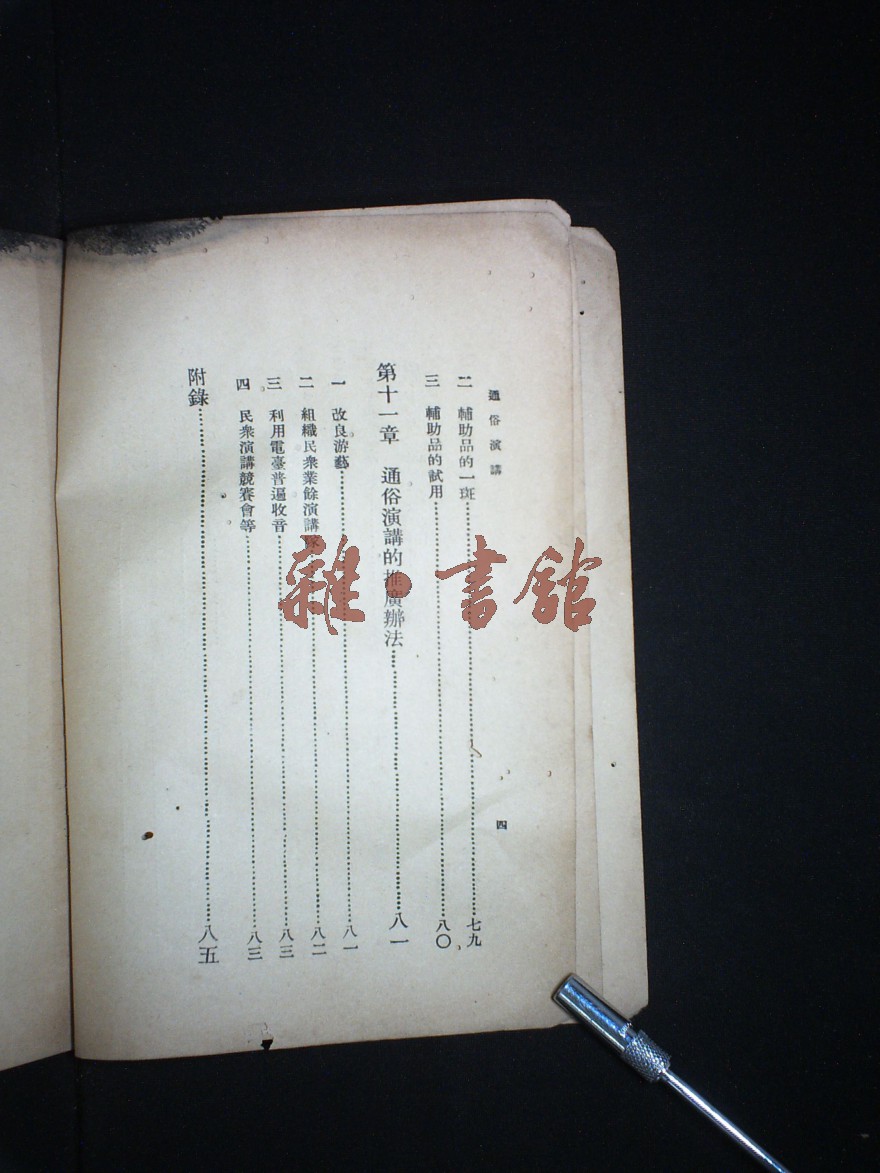 通俗演講
四
二 輔助品的一斑⋯⋯七九
三 輔助品的試用⋯⋯八〇
第十一章 通俗演講的推廣辦法⋯⋯八一
一 改良游藝⋯⋯八一
二 組織民衆業餘演講隊⋯⋯八二
三 利用電臺普遍收音⋯⋯八三
四 民衆演講競賽會等⋯⋯八三
附錄⋯⋯八五
雜·書館